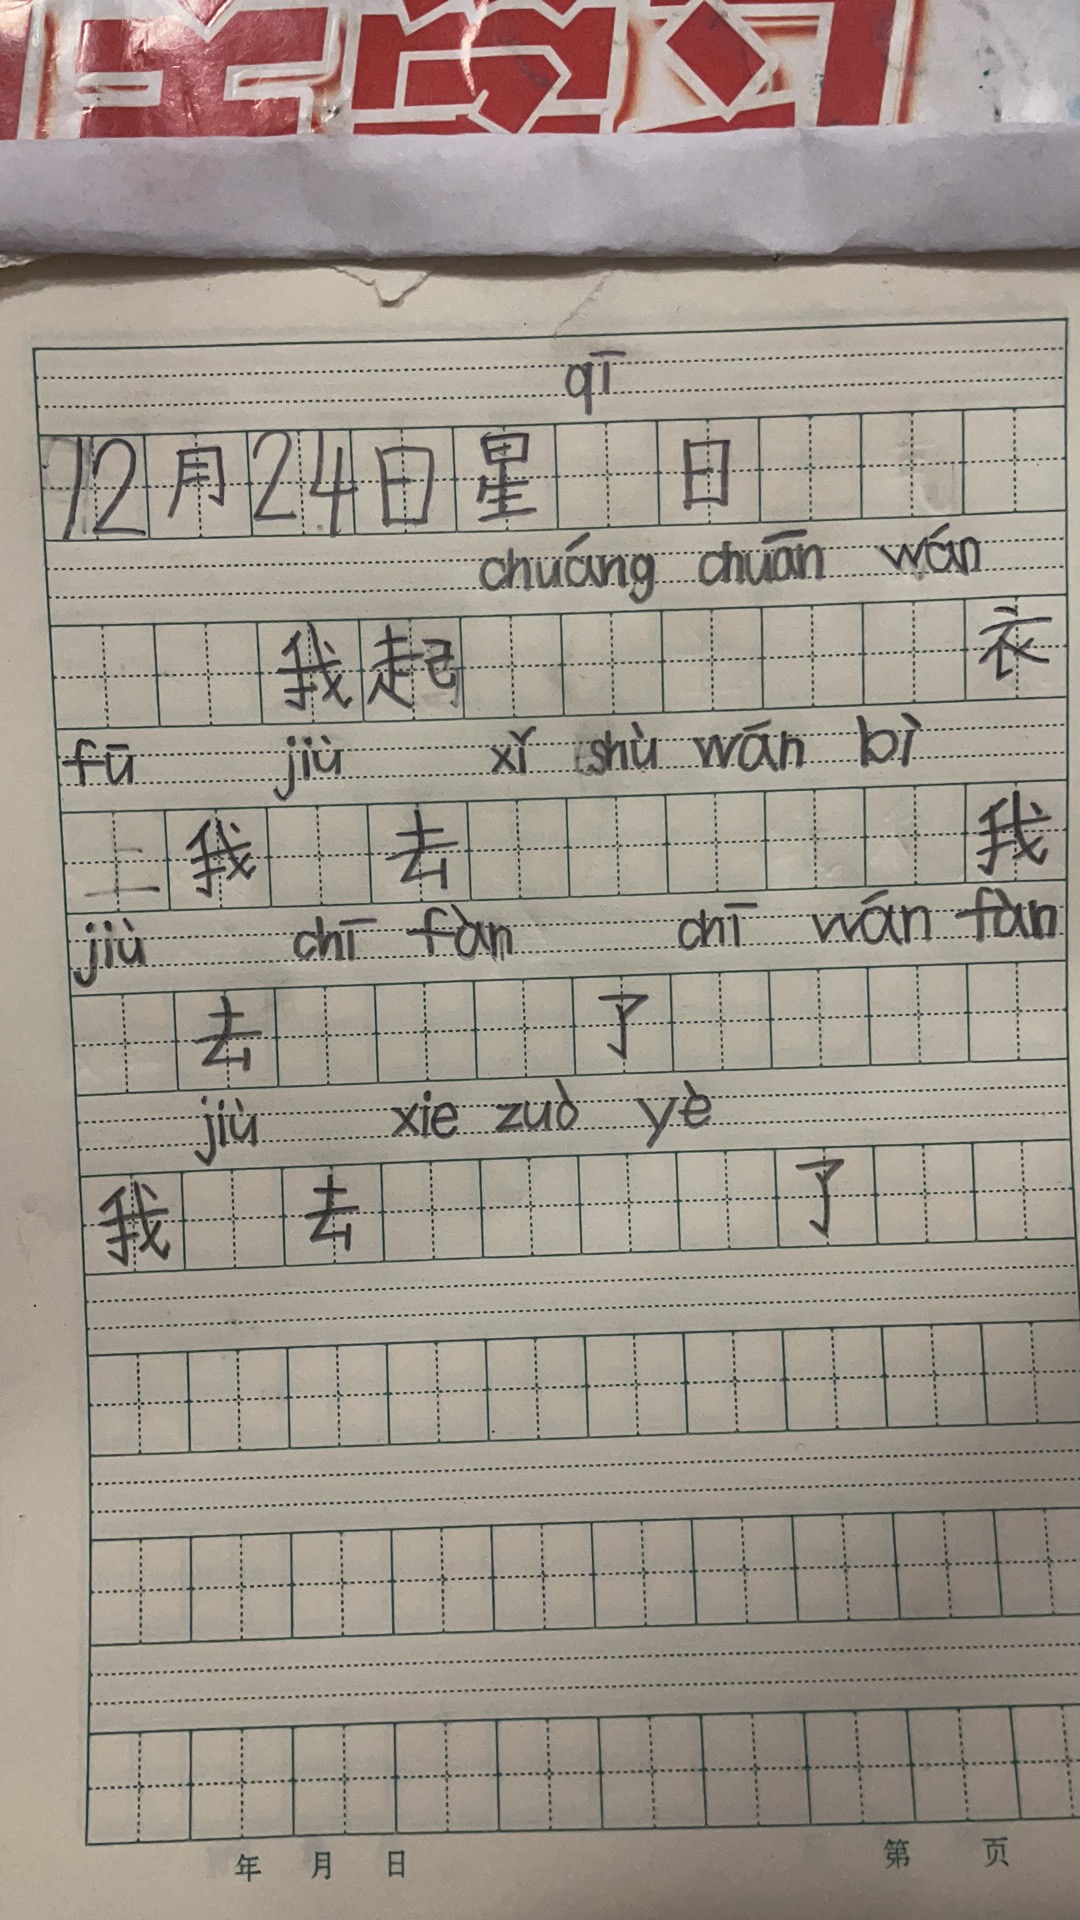 qī
12月24日星 日
chuáng chuān wán
我起 衣
fū jiù xǐ shù wān bì
上我 去 我
jiù chī fàn chī wán fàn
去 了
jiù xie zuò yè
我 去 了
年 月 日 第 页